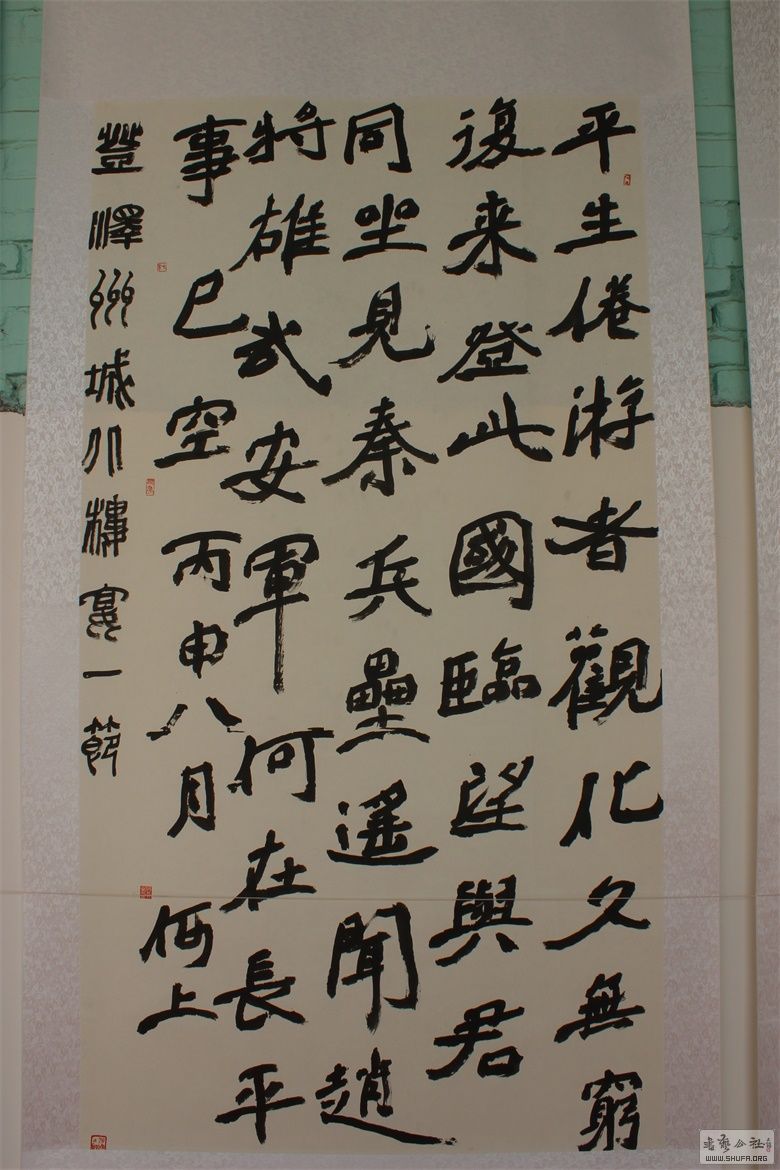 平生倦游者觀化久無窮
復来登此國臨望與君
同坐見秦兵壘遥聞趙
將雄武安軍何在長平
事已空 丙申八月 上
登澤州城北樓宴一節
书艺公社
WWW.SHUFA.ORG